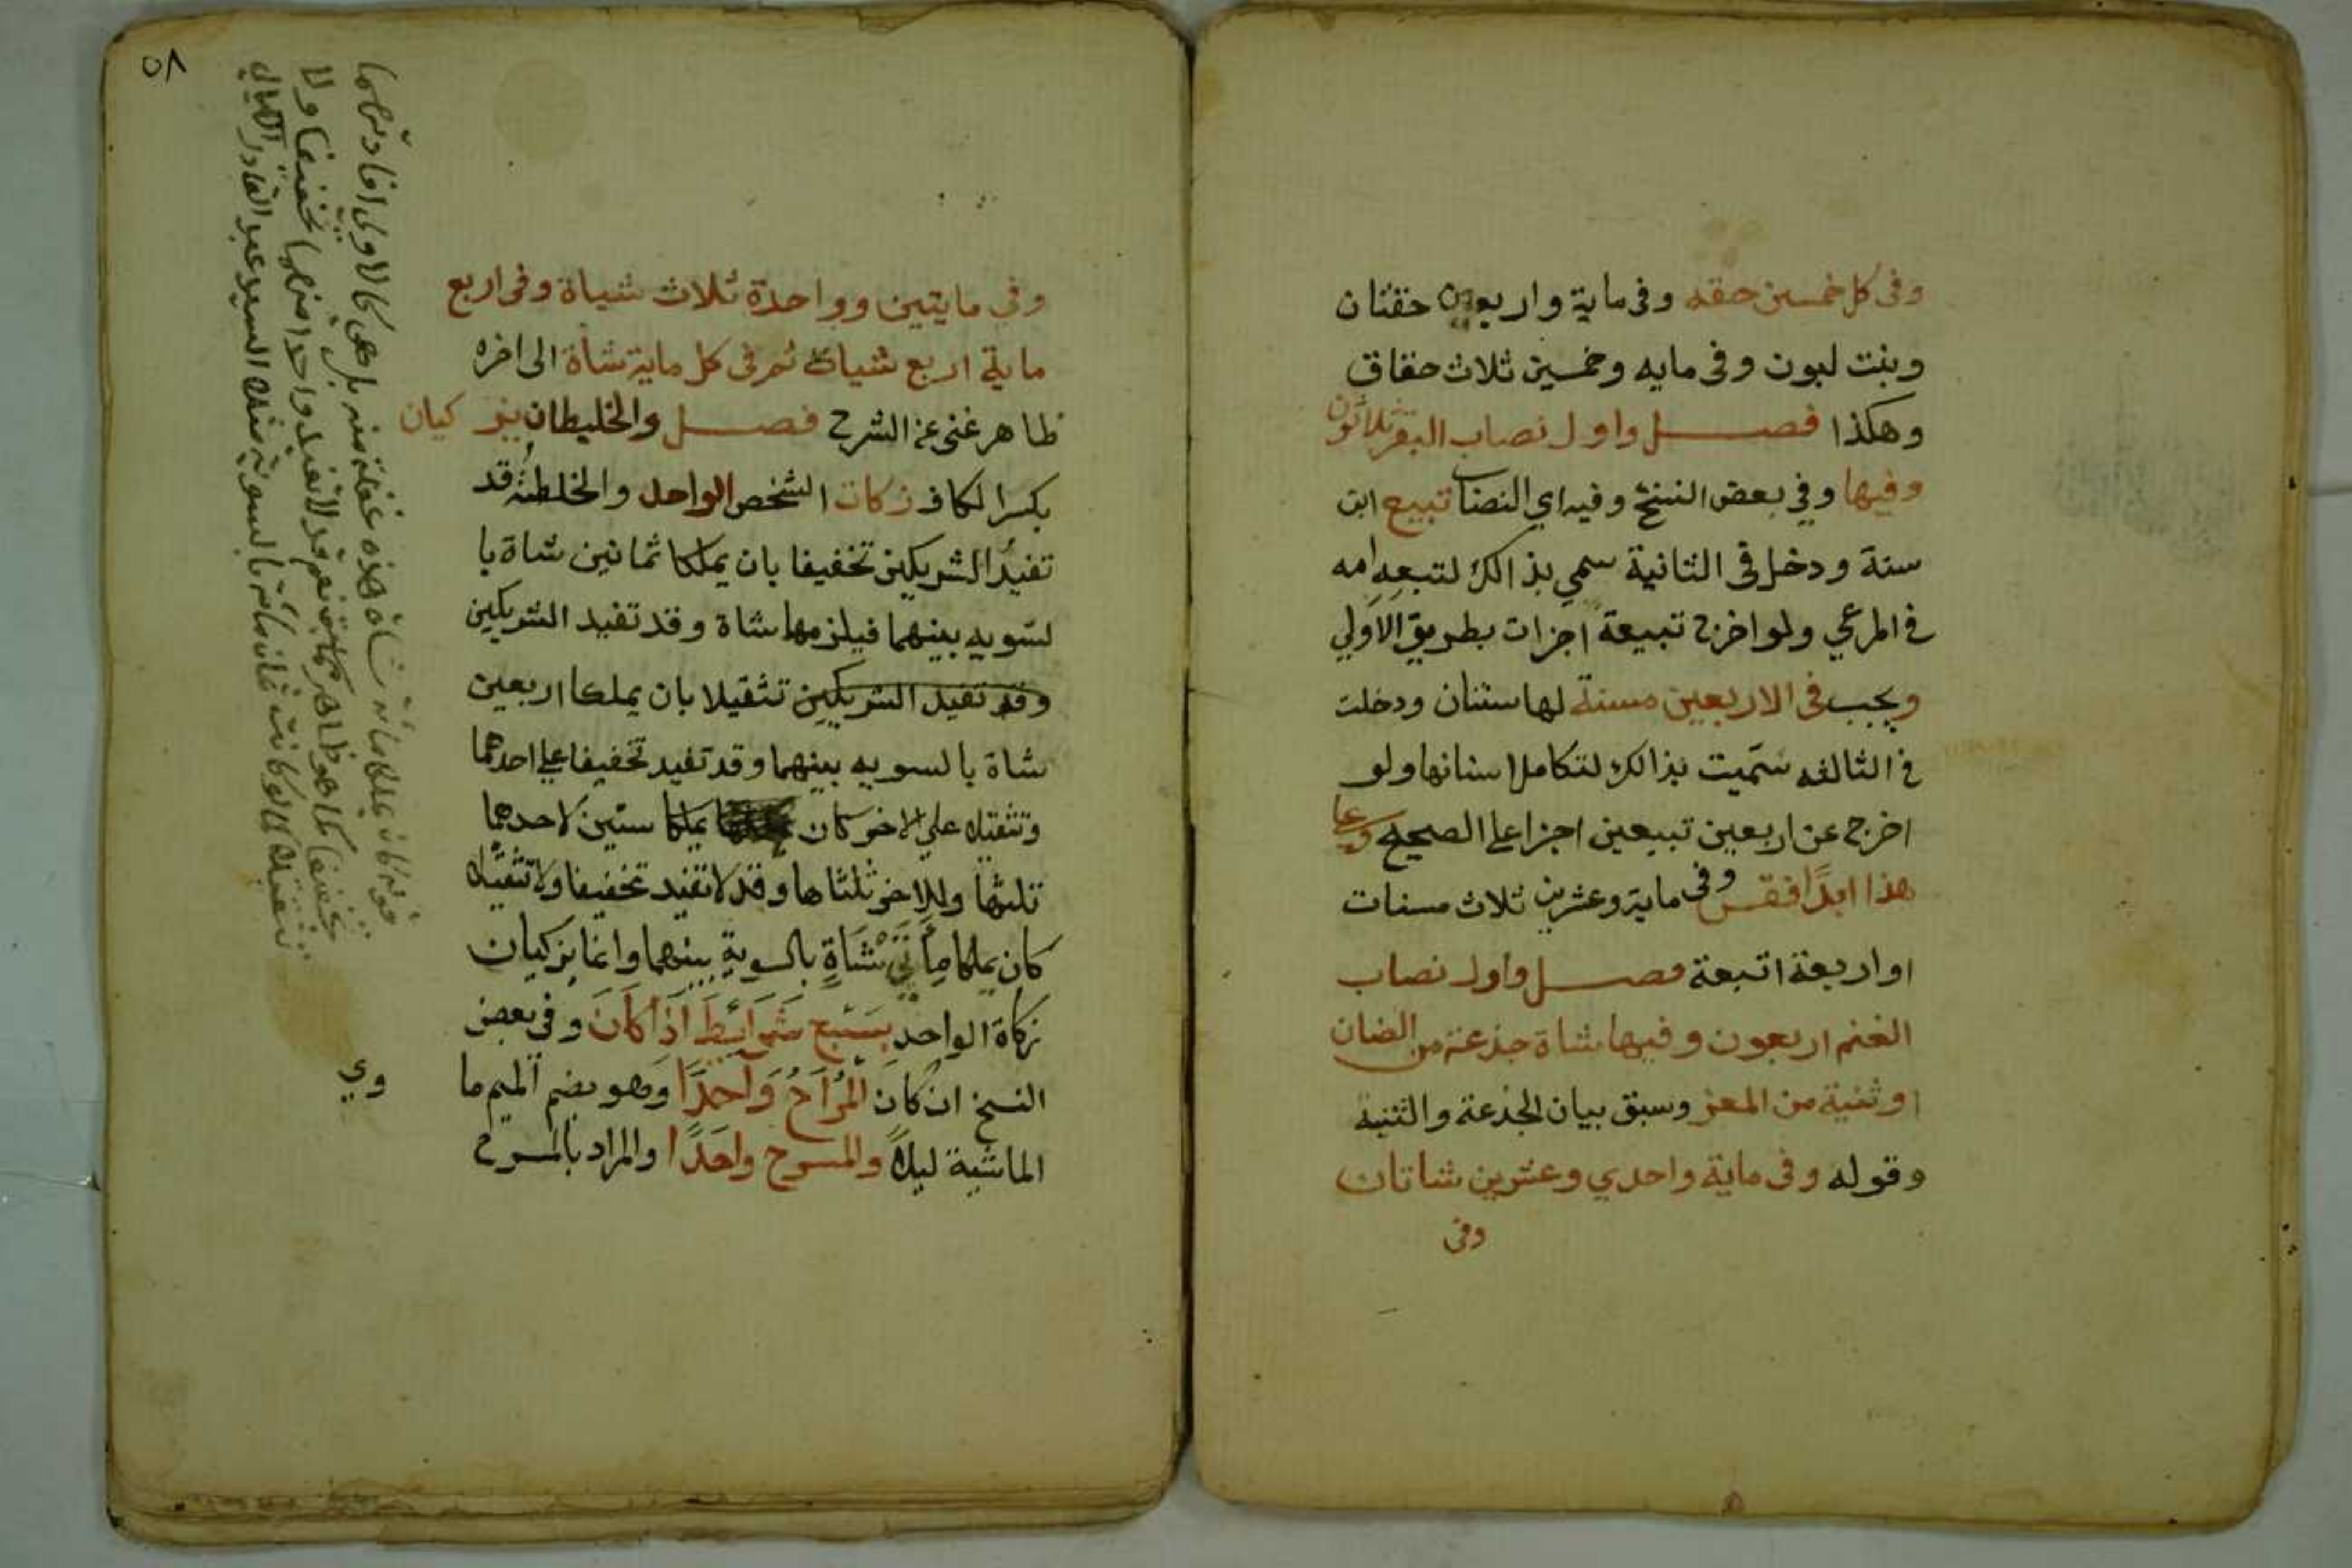 وفى كل خمسين حقه وفى ماية واربعون حقتان
وبنت لبون وفى مايه وخمسين ثلاث حقاق
وهكذا فصل واول نصاب البقر ثلاثون
وفيها وفي بعض النسخ وفيه اي النصاب تبيع ابن
سنة ودخل فى الثانية سمي بذالك لتبعه امه
في المرعي ولو اخرج تبيعة اجزات بطريق الاولي
ويجب فى الاربعين مسنة لها سنتان ودخلت
في الثالثه سميت بذالك لتكامل اسنانها ولو
اخرج عن اربعين تبيعين اجزا علي الصحيح وعلي
هذا ابدًا فقس وفى ماية وعشرين ثلاث مسنات
او اربعة اتبعة فصل واول نصاب
الغنم اربعون وفيها شاة جذعة من الضان
او ثنية من المعز وسبق بيان الجذعة والثنية
وقوله وفى ماية واحدي وعشرين شاتان
وفى
٥٨
وفي مايتين وواحدة ثلاث شياة وفى اربع
ماية اربع شياة ثم فى كل ماية شاة الى اخره
ظاهر غنى عن الشرح فصل والخليطان يزكيان
بكسر الكاف زكات الشخص الواحد والخلطة قد
تفيد الشريكين تخفيفا بان يملكا ثمانين شاة با
لسويه بينهما فيلزمها شاة وقد تفيد الشريكين
وقد تفيد الشريكين تثقيلا بان يملكا اربعين
شاة بالسويه بينهما وقد تفيد تخفيفا علي احدهما
وتثقيلا علي الاخر كان يملكا ستين لاحدهما
ثلثها وللاخر ثلثاها وقد لا تفيد تخفيفا ولا تثقيلا
كان يملكا مأتي شاة بالسوية بينهما وانما يزكيان
زكاة الواحد بسبع شرائط اذا كان وفى بعض
النسخ ان كان المراح واحدًا وهو بضم الميم ما
الماشية ليلاً والمسرح واحدًا والمراد بالمسرح
قوله كان يملكا مائة شاة هذه غفلة منه بل هي كالاولى افادتهما
تخفيفا كما هو ظاهر نعم قد لا تفيد واحدا منهما تخفيفا ولا
تثقيلا كما لو كانت مائتان بالسوية